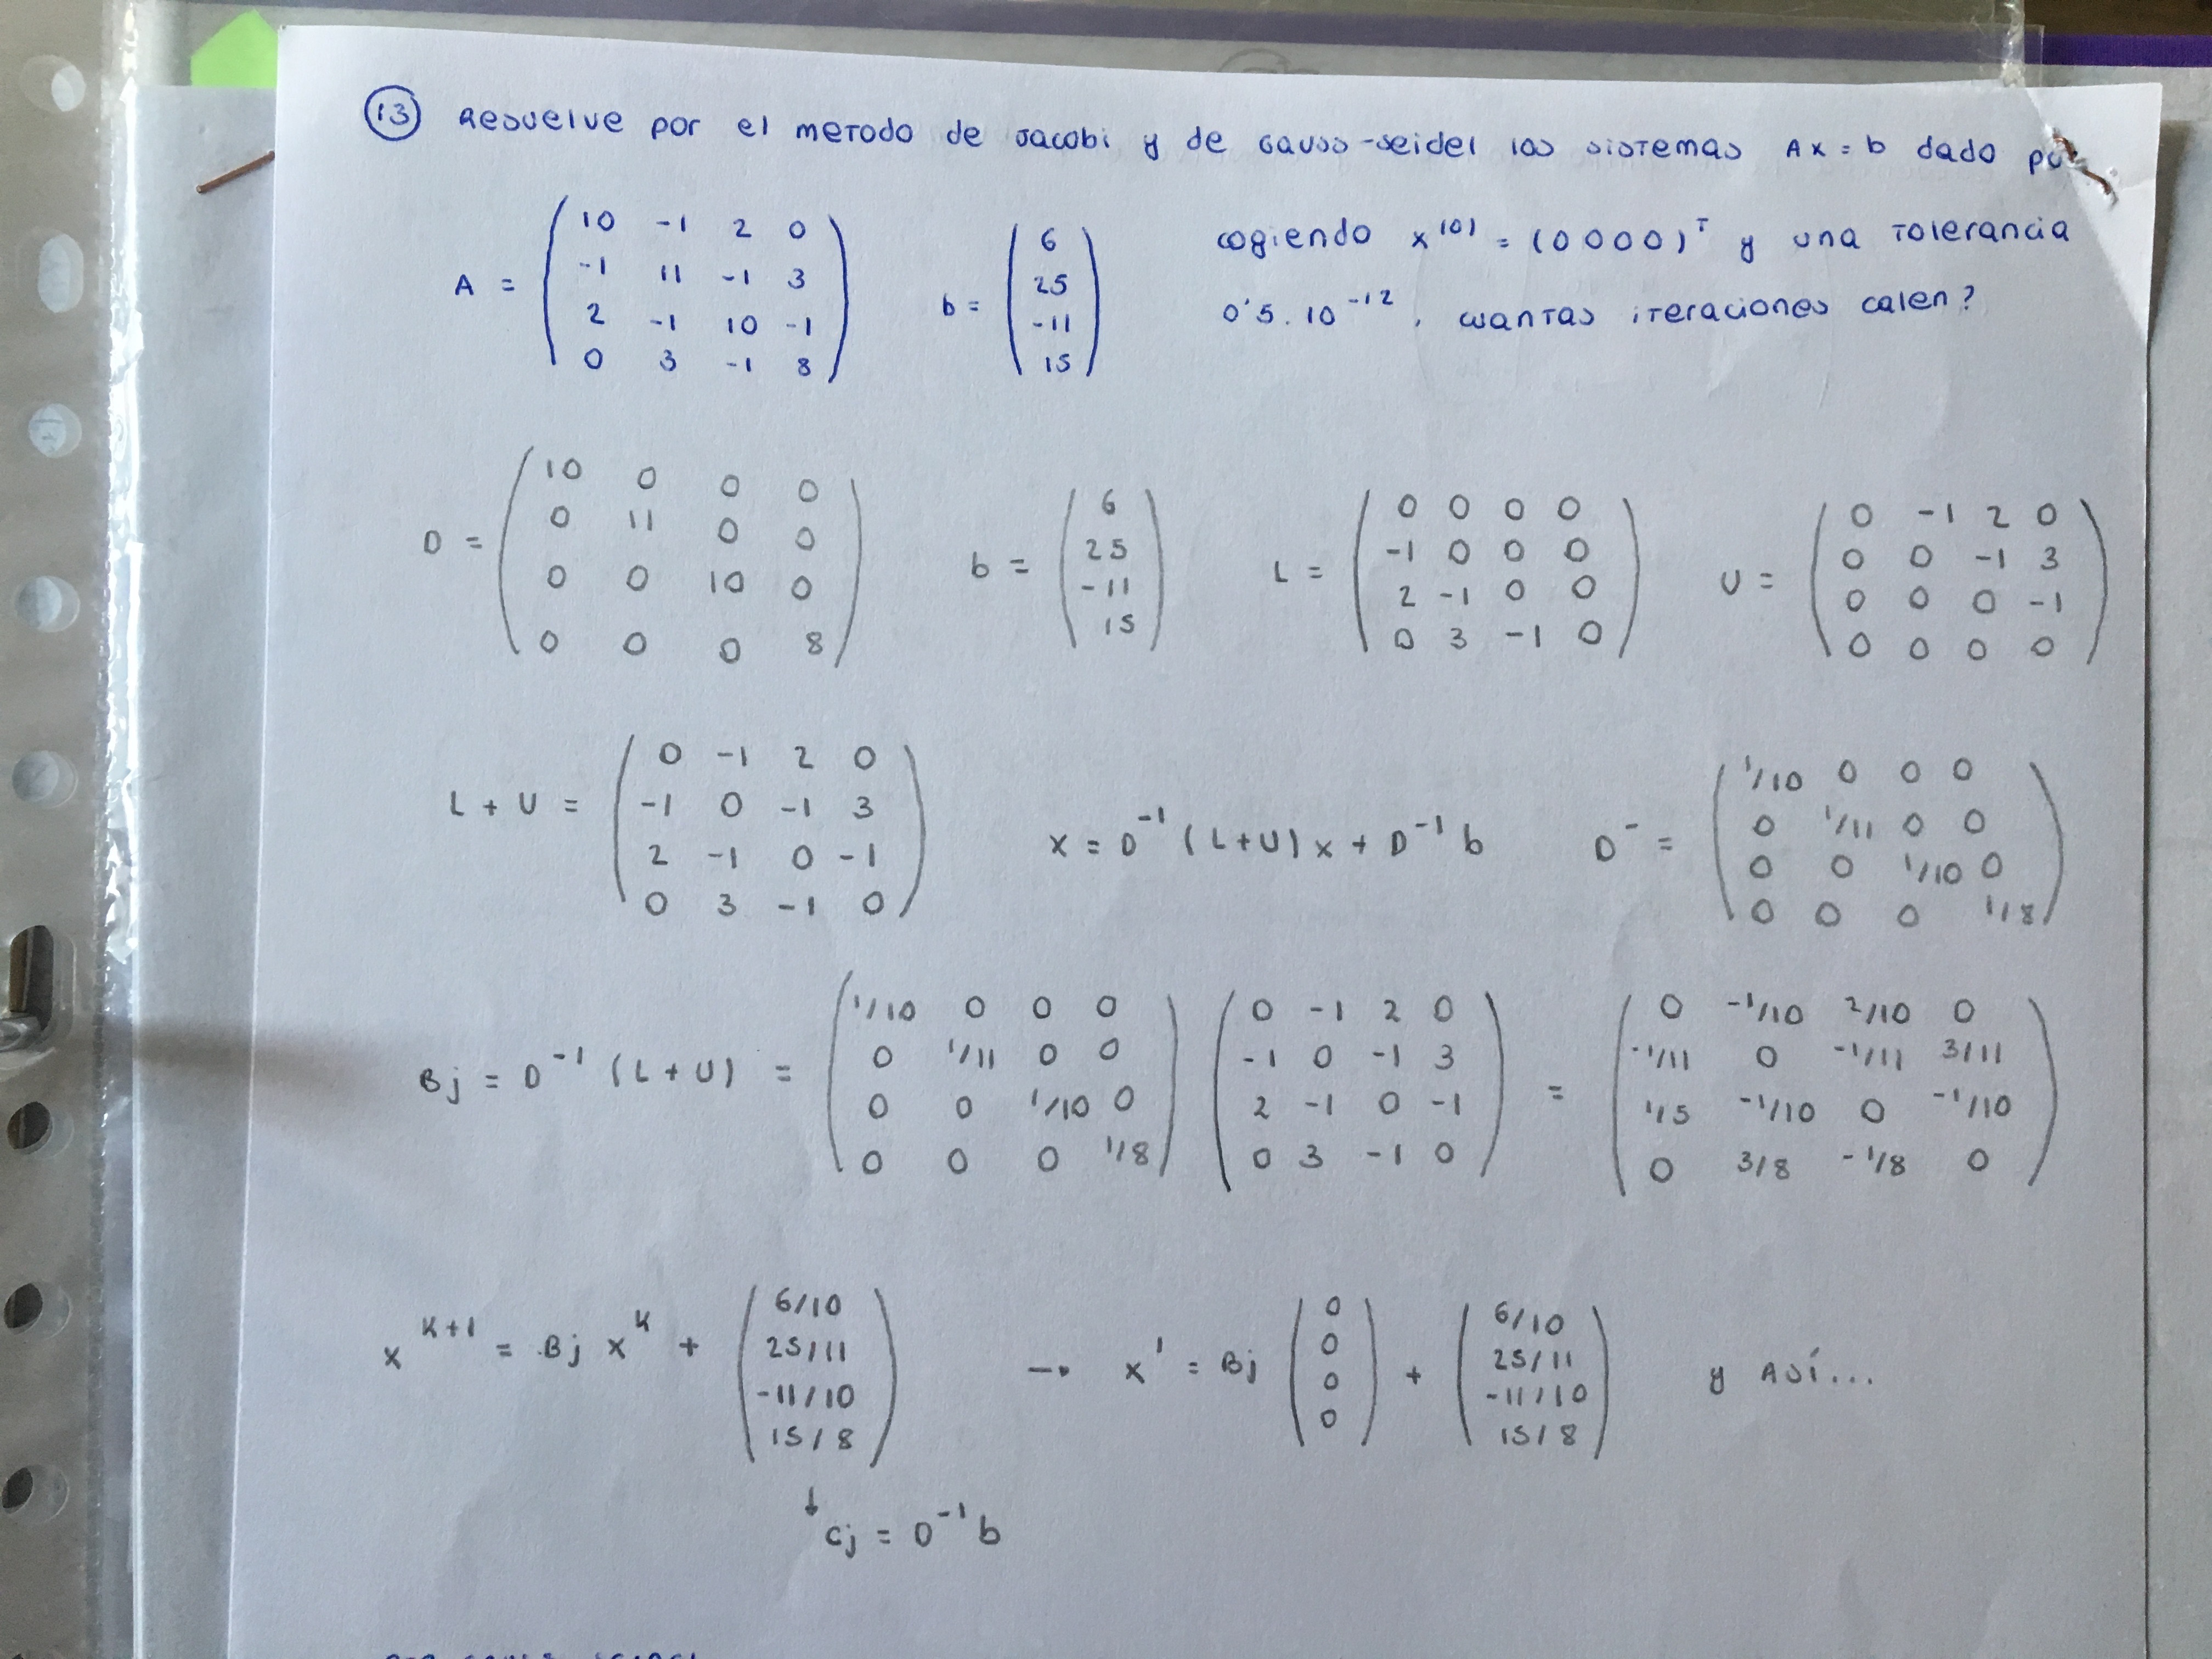 13 Resuelve por el metodo de Jacobi y de Gauss-Seidel los sistemas Ax = b dado
A = ( 10 -1 2 0 ; -1 11 -1 3 ; 2 -1 10 -1 ; 0 3 -1 8 ) b = ( 6 ; 25 ; -11 ; 15 ) cogiendo x^(0) = (0 0 0 0)^T y una tolerancia
0'5 . 10^-12 , cuantas iteraciones calen?
D = ( 10 0 0 0 ; 0 11 0 0 ; 0 0 10 0 ; 0 0 0 8 ) b = ( 6 ; 25 ; -11 ; 15 ) L = ( 0 0 0 0 ; -1 0 0 0 ; 2 -1 0 0 ; 0 3 -1 0 ) U = ( 0 -1 2 0 ; 0 0 -1 3 ; 0 0 0 -1 ; 0 0 0 0 )
L + U = ( 0 -1 2 0 ; -1 0 -1 3 ; 2 -1 0 -1 ; 0 3 -1 0 ) x = D^-1 (L+U) x + D^-1 b D^- = ( 1/10 0 0 0 ; 0 1/11 0 0 ; 0 0 1/10 0 ; 0 0 0 1/8 )
Bj = D^-1 (L+U) = ( 1/10 0 0 0 ; 0 1/11 0 0 ; 0 0 1/10 0 ; 0 0 0 1/8 ) ( 0 -1 2 0 ; -1 0 -1 3 ; 2 -1 0 -1 ; 0 3 -1 0 ) = ( 0 -1/10 2/10 0 ; -1/11 0 -1/11 3/11 ; 1/5 -1/10 0 -1/10 ; 0 3/8 -1/8 0 )
x^k+1 = Bj x^k + ( 6/10 ; 25/11 ; -11/10 ; 15/8 ) → x^1 = Bj ( 0 ; 0 ; 0 ; 0 ) + ( 6/10 ; 25/11 ; -11/10 ; 15/8 ) y así...
↓ cj = D^-1 b